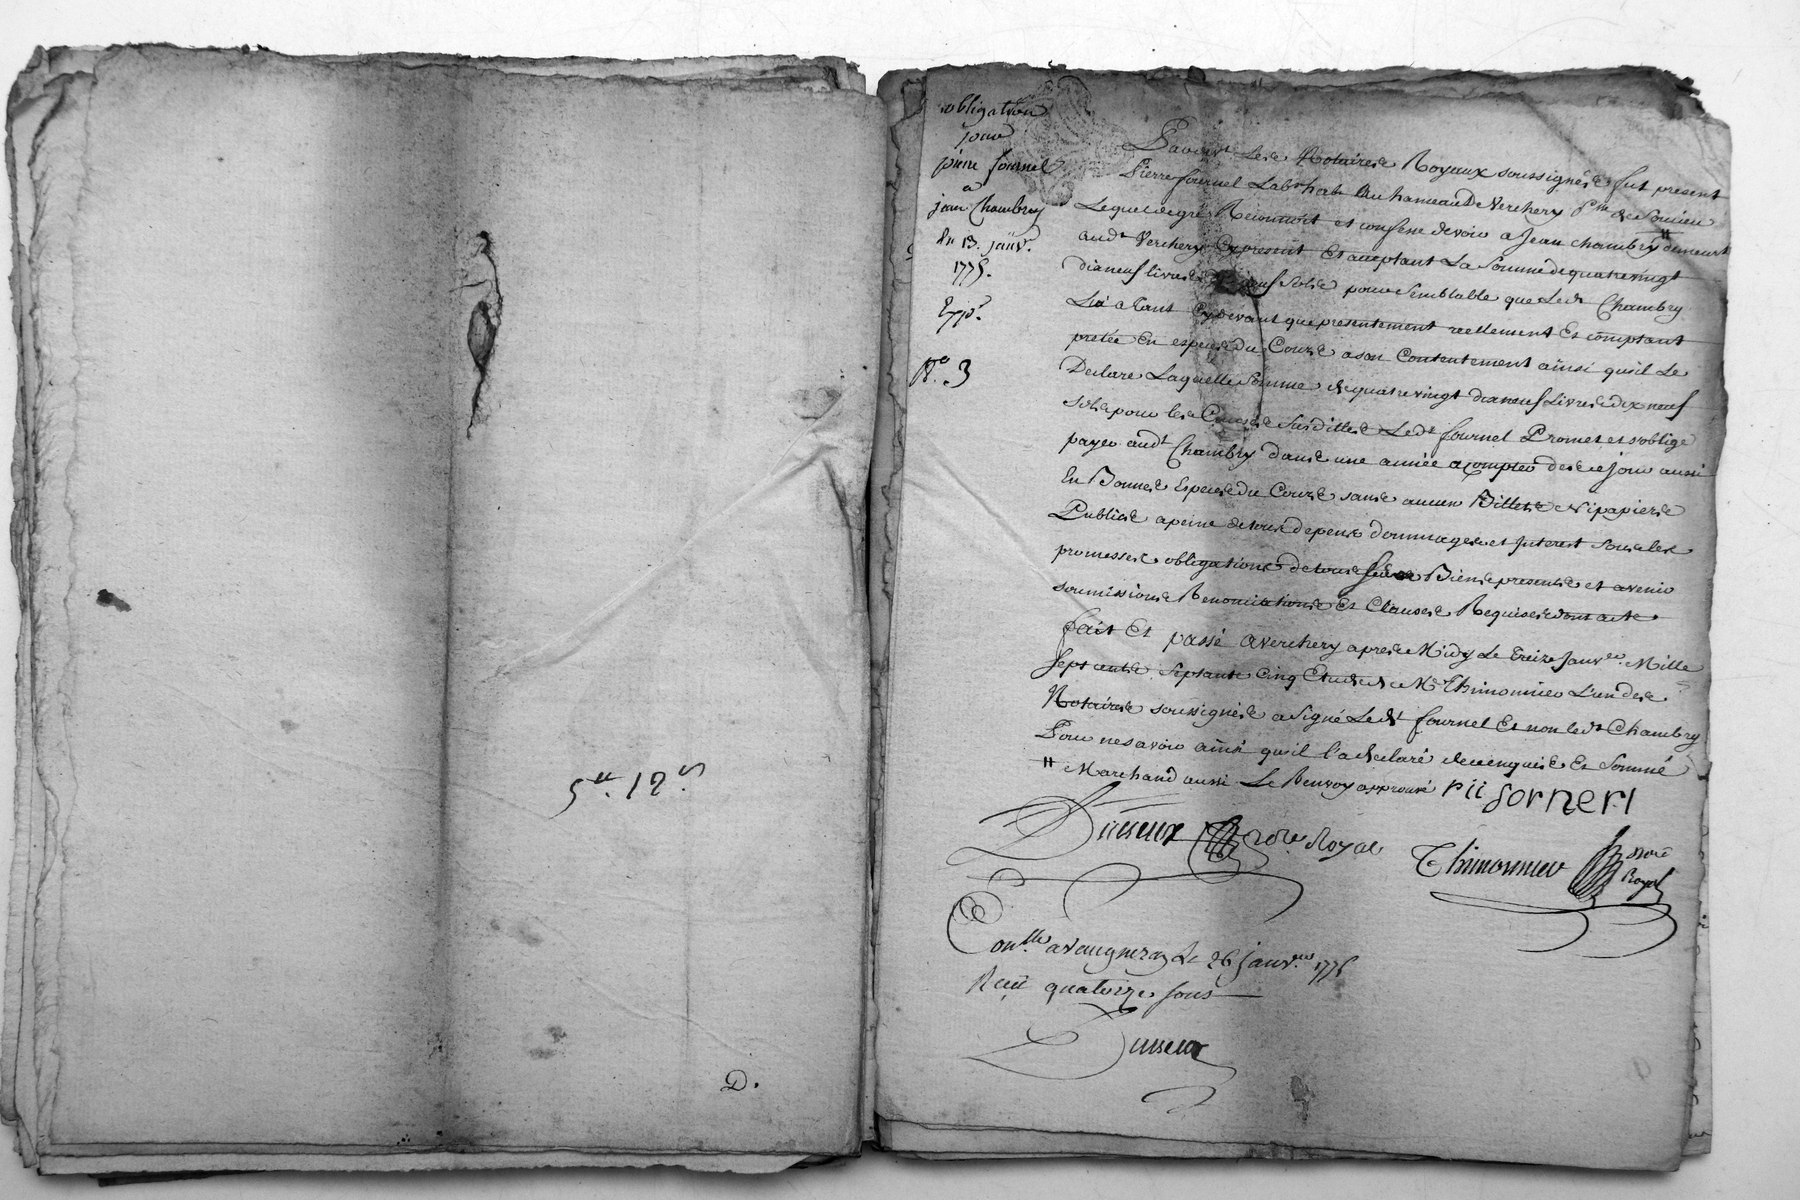 5ᵗᵗ. 12ˢ.
D.
obligation
pour
pierre fournel
a
jean Chambry
Du 13. janvʳ.
1775.
Expᵉ.
Nº. 3
Pardevᵗ Les Notaires Royaux soussignés fut present
Pierre fournel Labʳ habᵗ Au hameau De Verchery psse de
Lequel de gré Reconnoit et confesse devoir a Jean chambry " demeurᵗ
audᵗ Verchery Cy present Et acceptant La Somme de quatre vingt
dixneuf livres dix neuf Sols pour Semblable que Ledᵗ Chambry
Lui a Tant Cy devant que presentement reellement Et comptant
pretée En especes du Cours a son Contentement ainsi qu'il Le
Declare Laquelle Somme de quatre vingt dixneuf Livres dix neuf
Sols pour les Causes Susdittes Ledᵗ fournel Promet et s'oblige
payer audᵗ Chambry dans une année a Compter de ce jour aussi
En Bonnes Especes du Cours sans aucun Billets Ni papiers
Publics a peine de tous depens dommages et Interest Sous les
promesses obligations de tous ses Biens presents et avenir
soumissions Renonciations Et Clauses Requises dont acte
fait Et passé a Verchery apres Midy Le Treize Janvᵉʳ. Mille
Sept cents Septante Cinq Etude de Mᵉ Thimonnier L'un des
Notaires soussignés a Signé Ledᵗ fournel Et non ledᵗ Chambry
Pour ne savoir ainsi qu'il l'a declaré de ce enquis Et Sommé
" Marchand aussi Le Renvoy approuvé pii fornerl
Dusseux noʳᵉ Royal
Thimonnier Noʳᵉ
Royal
Conᵗˡˡᵉ a Vaugneray Le 26 janvᵉʳ 1775
Recû quatorze sous
Dusseux